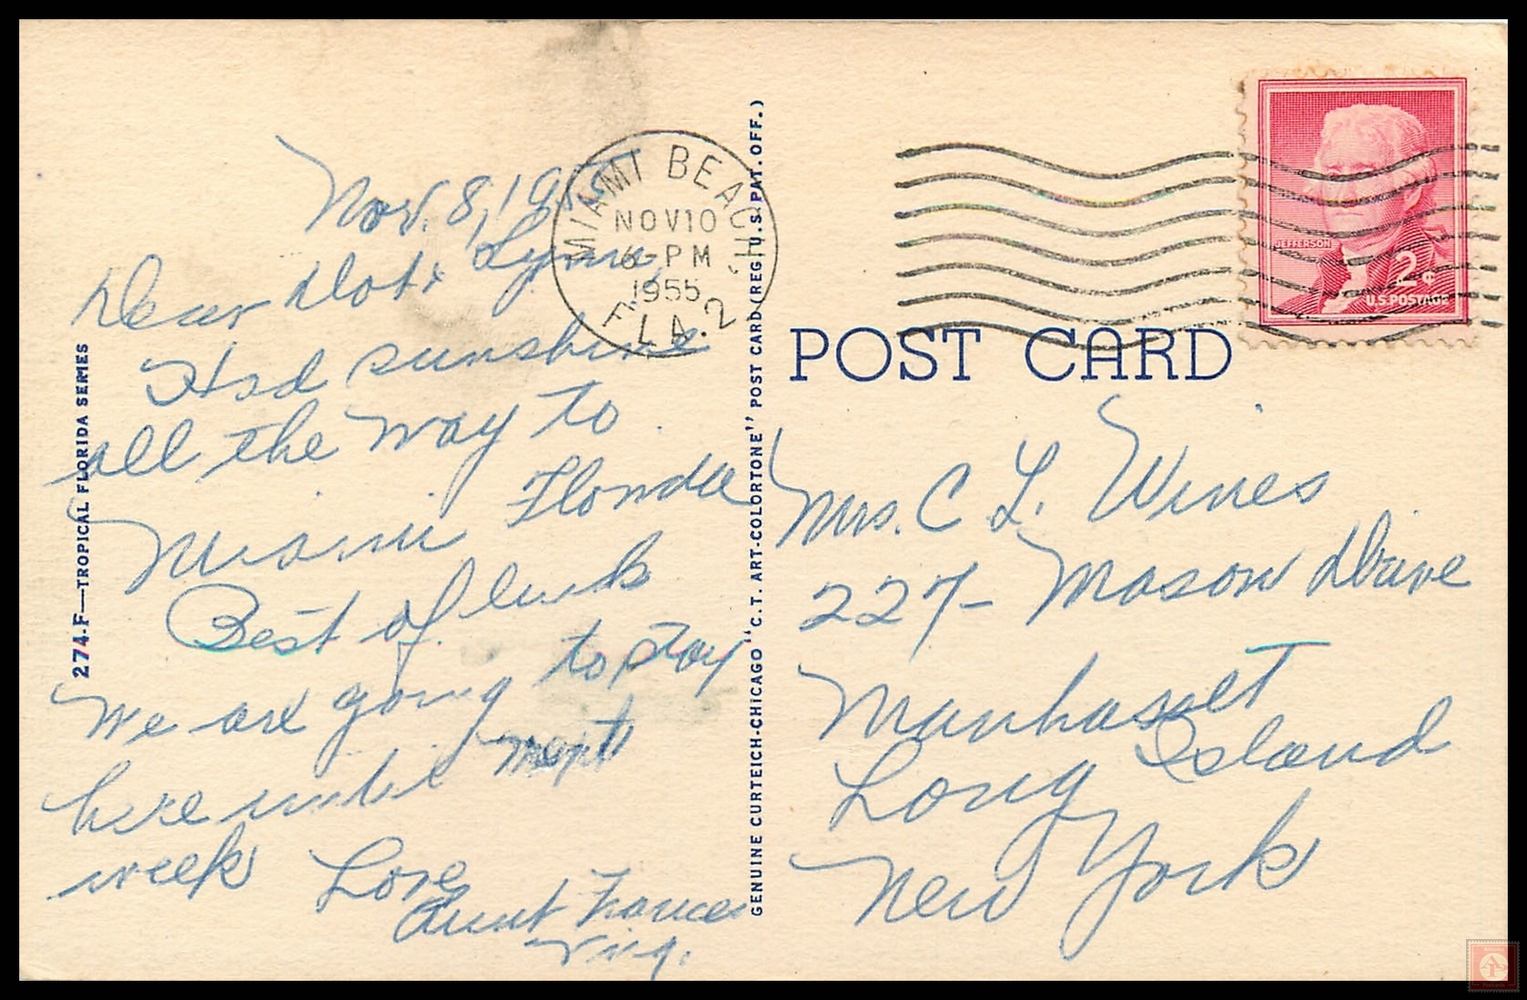 Nov. 8, 1955
Dear Dot &
Had sunshine
all the way to
Miami Florida
Best of luck
We are going to stay
here until next
week Love
Aunt Frances
Virg.
274-F—TROPICAL FLORIDA SERIES
GENUINE CURTEICH-CHICAGO "C.T. ART-COLORTONE" POST CARD (REG. U.S. PAT. OFF.)
MIAMI BEACH
NOV 10
6-PM
1955
FLA. 2
JEFFERSON
2¢
U.S. POSTAGE
POST CARD
Mrs. C L. Wines
227- Mason Drive
Manhasset
Long Island
New York